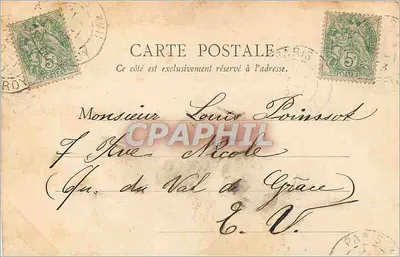 CARTE POSTALE
Ce côté est exclusivement réservé à l'adresse.
PARIS
5
5
Monsieur Louis Poinssot
CPAPHIL
7 Rue Nicole
(Qu. du Val de Grâce)
E. V.
PARIS